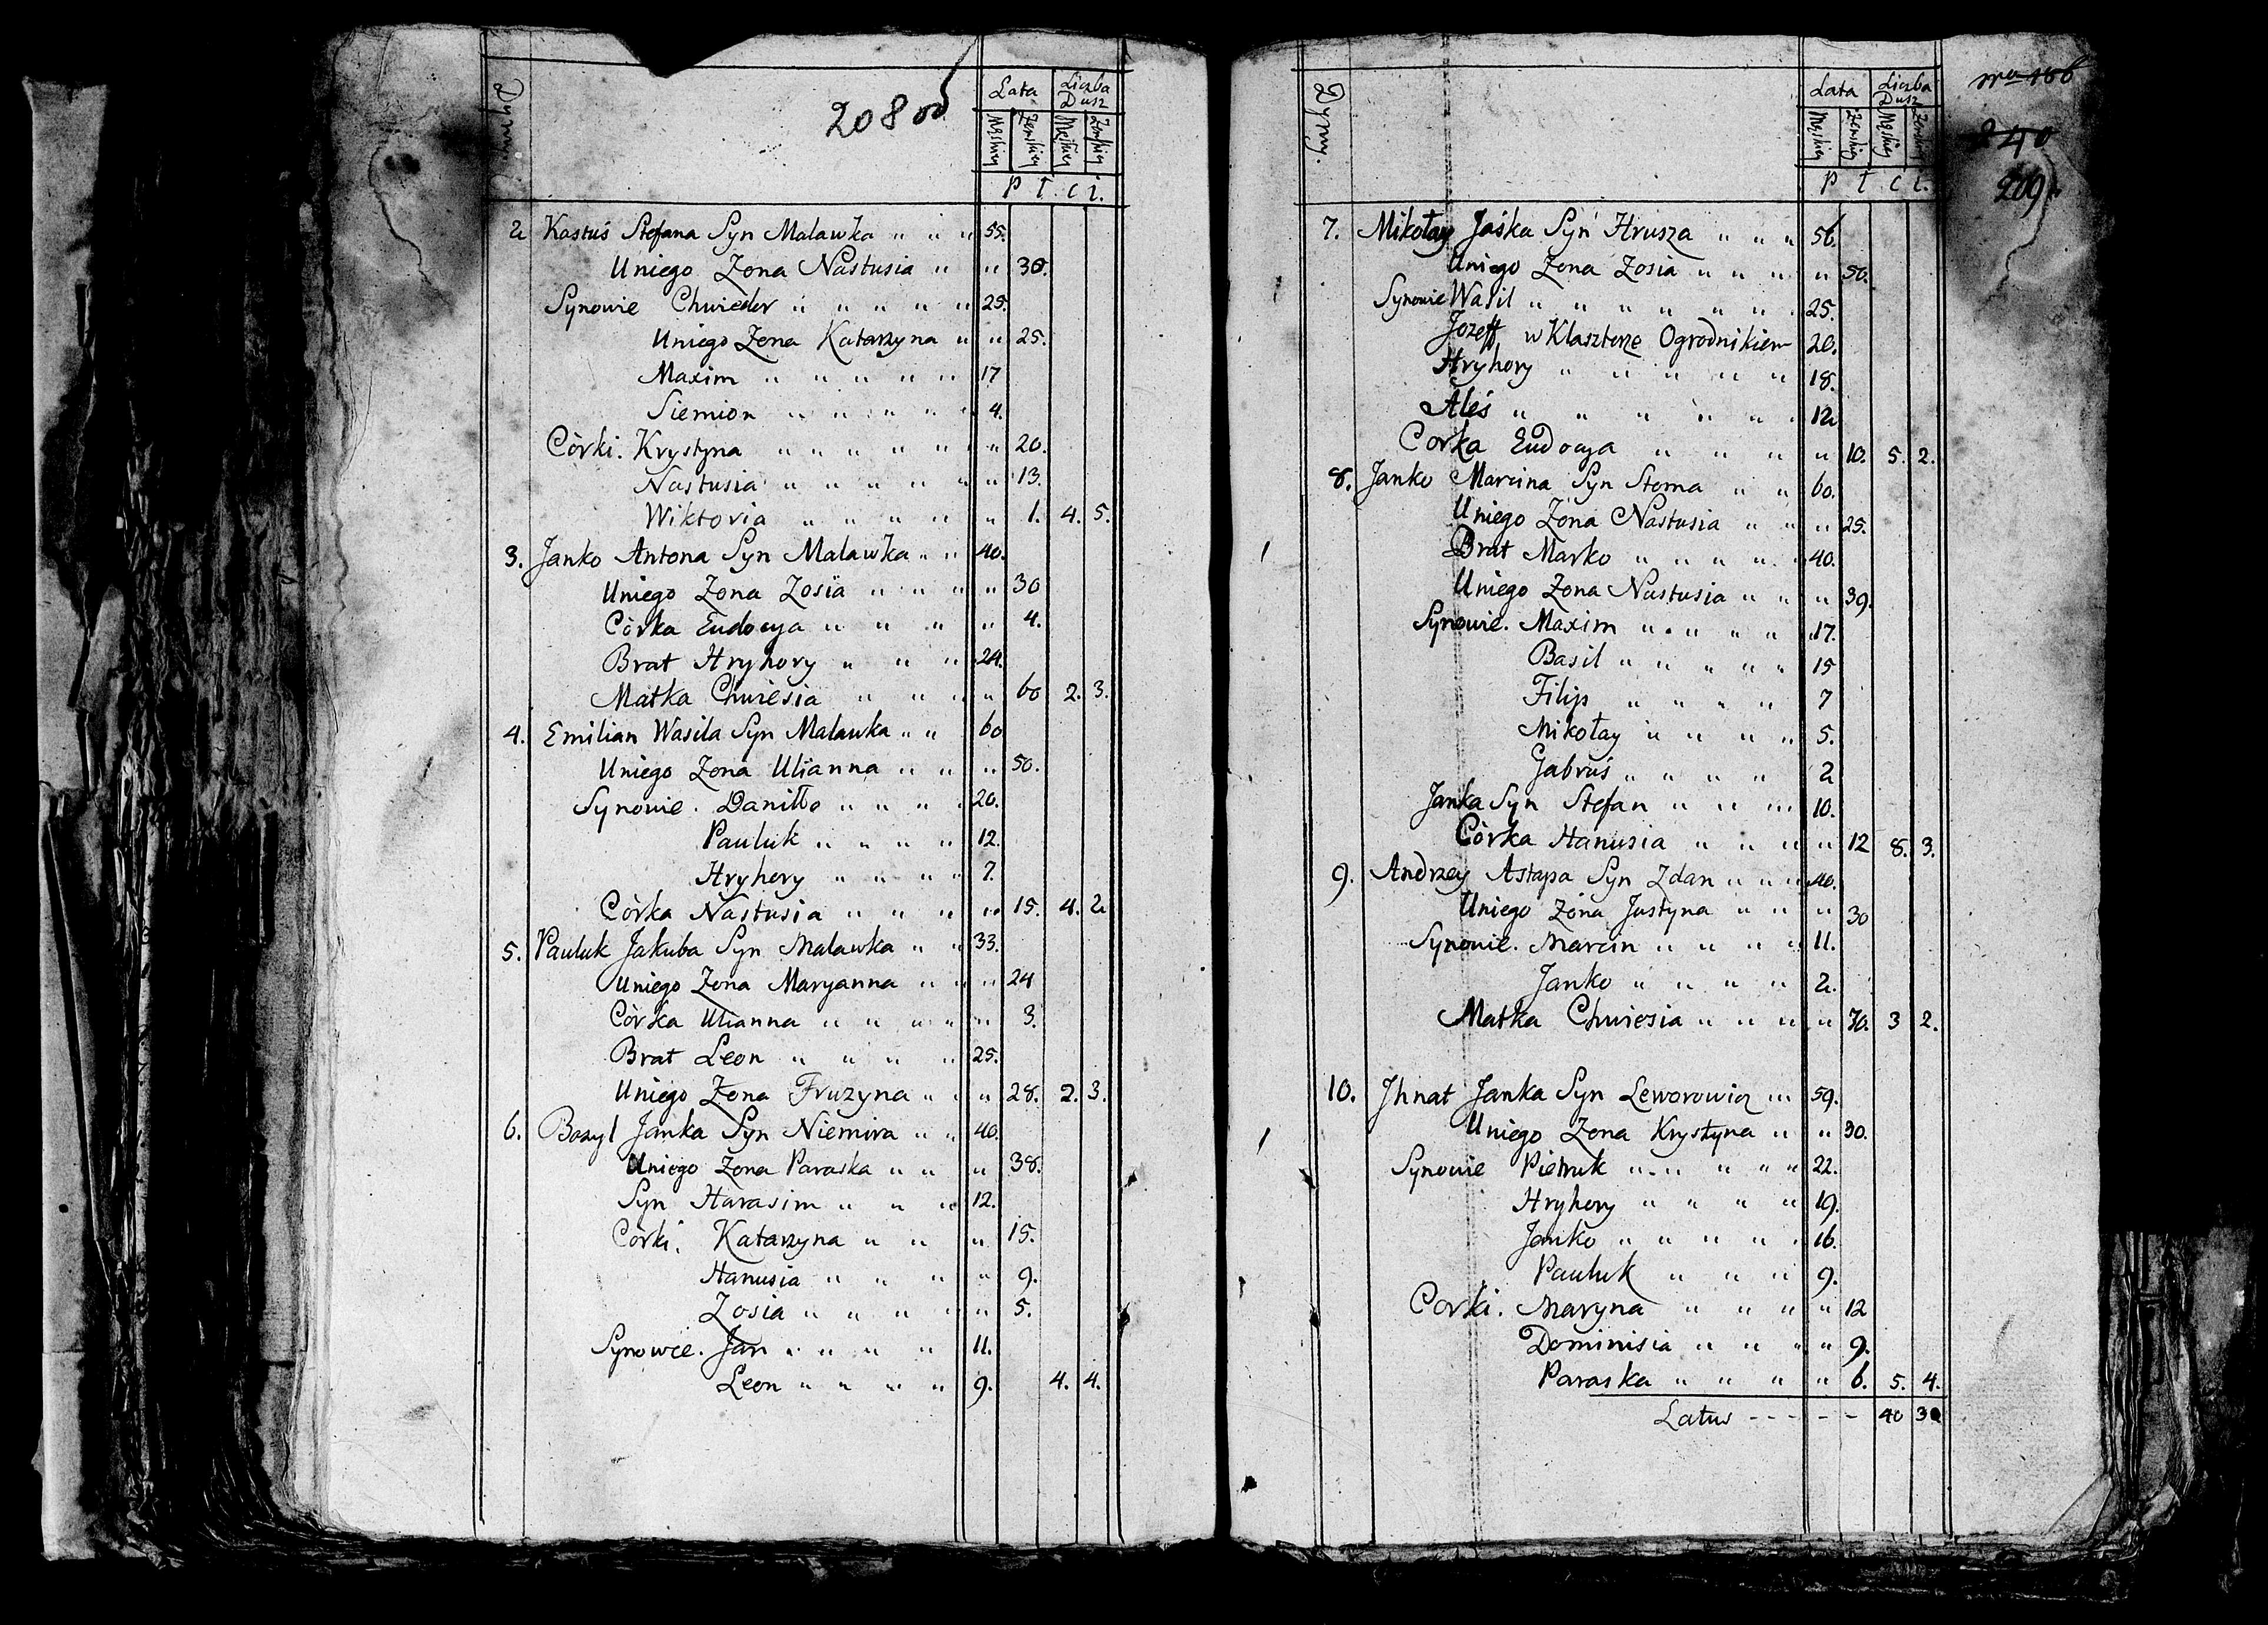 208 об
Dymy.
Lata
Liczba Dusz
Męskiey
Żenskiey
Męskiey
Żenskiey
P t. c i.
2 Kastuś Stefana Syn Malawka " " " 55.
Uniego Żona Nastusia " " 30.
Synowie Chwieder " " " " " 25.
Uniego Żona Katarzyna " " 25.
Maxim " " " " " 17
Siemion " " " " " 4.
Córki. Krystyna " " " " " " " 20.
Nastusia " " " " " " 13.
Wiktoria " " " " " " 1. 4. 5.
3. Janko Antona Syn Malawka " " 40.
Uniego Żona Zosia " " " " 30
Córka Eudocya " " " " 4.
Brat Hryhory " " " 24.
Matka Chwiesia " " " " 60 2. 3.
4. Emilian Wasila Syn Malawka " " 60
Uniego Żona Ulianna " " " 50.
Synowie. Daniłło " " " " 20.
Pauluk " " " " 12.
Hryhory " " " " 7.
Córka Nastusia " " " " 15. 4. 2
5. Pauluk Jakuba Syn Malawka " " 33.
Uniego Żona Maryanna " " " 24
Córka Ulianna " " " " " 3.
Brat Leon " " " " 25.
Uniego Żona Fruzyna " " " 28. 2. 3.
6. Bazyl Janka Syn Niemira " " 40.
Uniego Żona Paraska " " " 38.
Syn Harasim " " " 12.
Córki. Katarzyna " " " 15.
Hanusia " " " " 9.
Zosia " " " " " 5.
Synowce. Jan " " " " 11.
Leon " " " " 9. 4. 4.
240
209
Dymy.
Lata
Liczba Dusz
Męskiey
Żenskiey
Męskiey
Żenskiey
P t. c i.
7. Mikołay Jaśka Syn Hrusza " " " 56.
Uniego Żona Zosia " " " " 50.
Synowie Wasil " " " " " " " 25.
Jozeff w Klasztorze Ogrodnikiem 20.
Hryhory " " " " " 18.
Aleś " " " " " " 12
Corka Eudocya " " " " 10. 5. 2.
8. Janko Marcina Syn Stoma " " 60.
Uniego Żona Nastusia " " " 25.
Brat Marko " " " " " 40.
Uniego Żona Nastusia " " " 39.
Synowie. Maxim " " " " " 17.
Basil " " " " " 15
Filip " " " " 7
Mikołay " " " " 5.
Gabruś " " " " 2
Janka Syn Stefan " " " 10.
Córka Hanusia " " " " 12 8. 3.
9. Andrzey Astapa Syn Zdan " " " 40.
Uniego Żona Justyna " " " 30
Synowie. Marcin " " " " 11.
Janko " " " " 2.
Matka Chwiesia " " " " 70. 3 2.
10. Jhnat Janka Syn Leworowicz " 59.
Uniego Żona Krystyna " " 30.
Synowie Pietruk " " " " " 22.
Hryhory " " " " 19.
Janko " " " " " 16.
Pauluk " " " 9.
Corki. Maryna " " " " " 12
Dominisia " " " " 9.
Paraska " " " " " 6. 5. 4.
Latus - - - - - 40